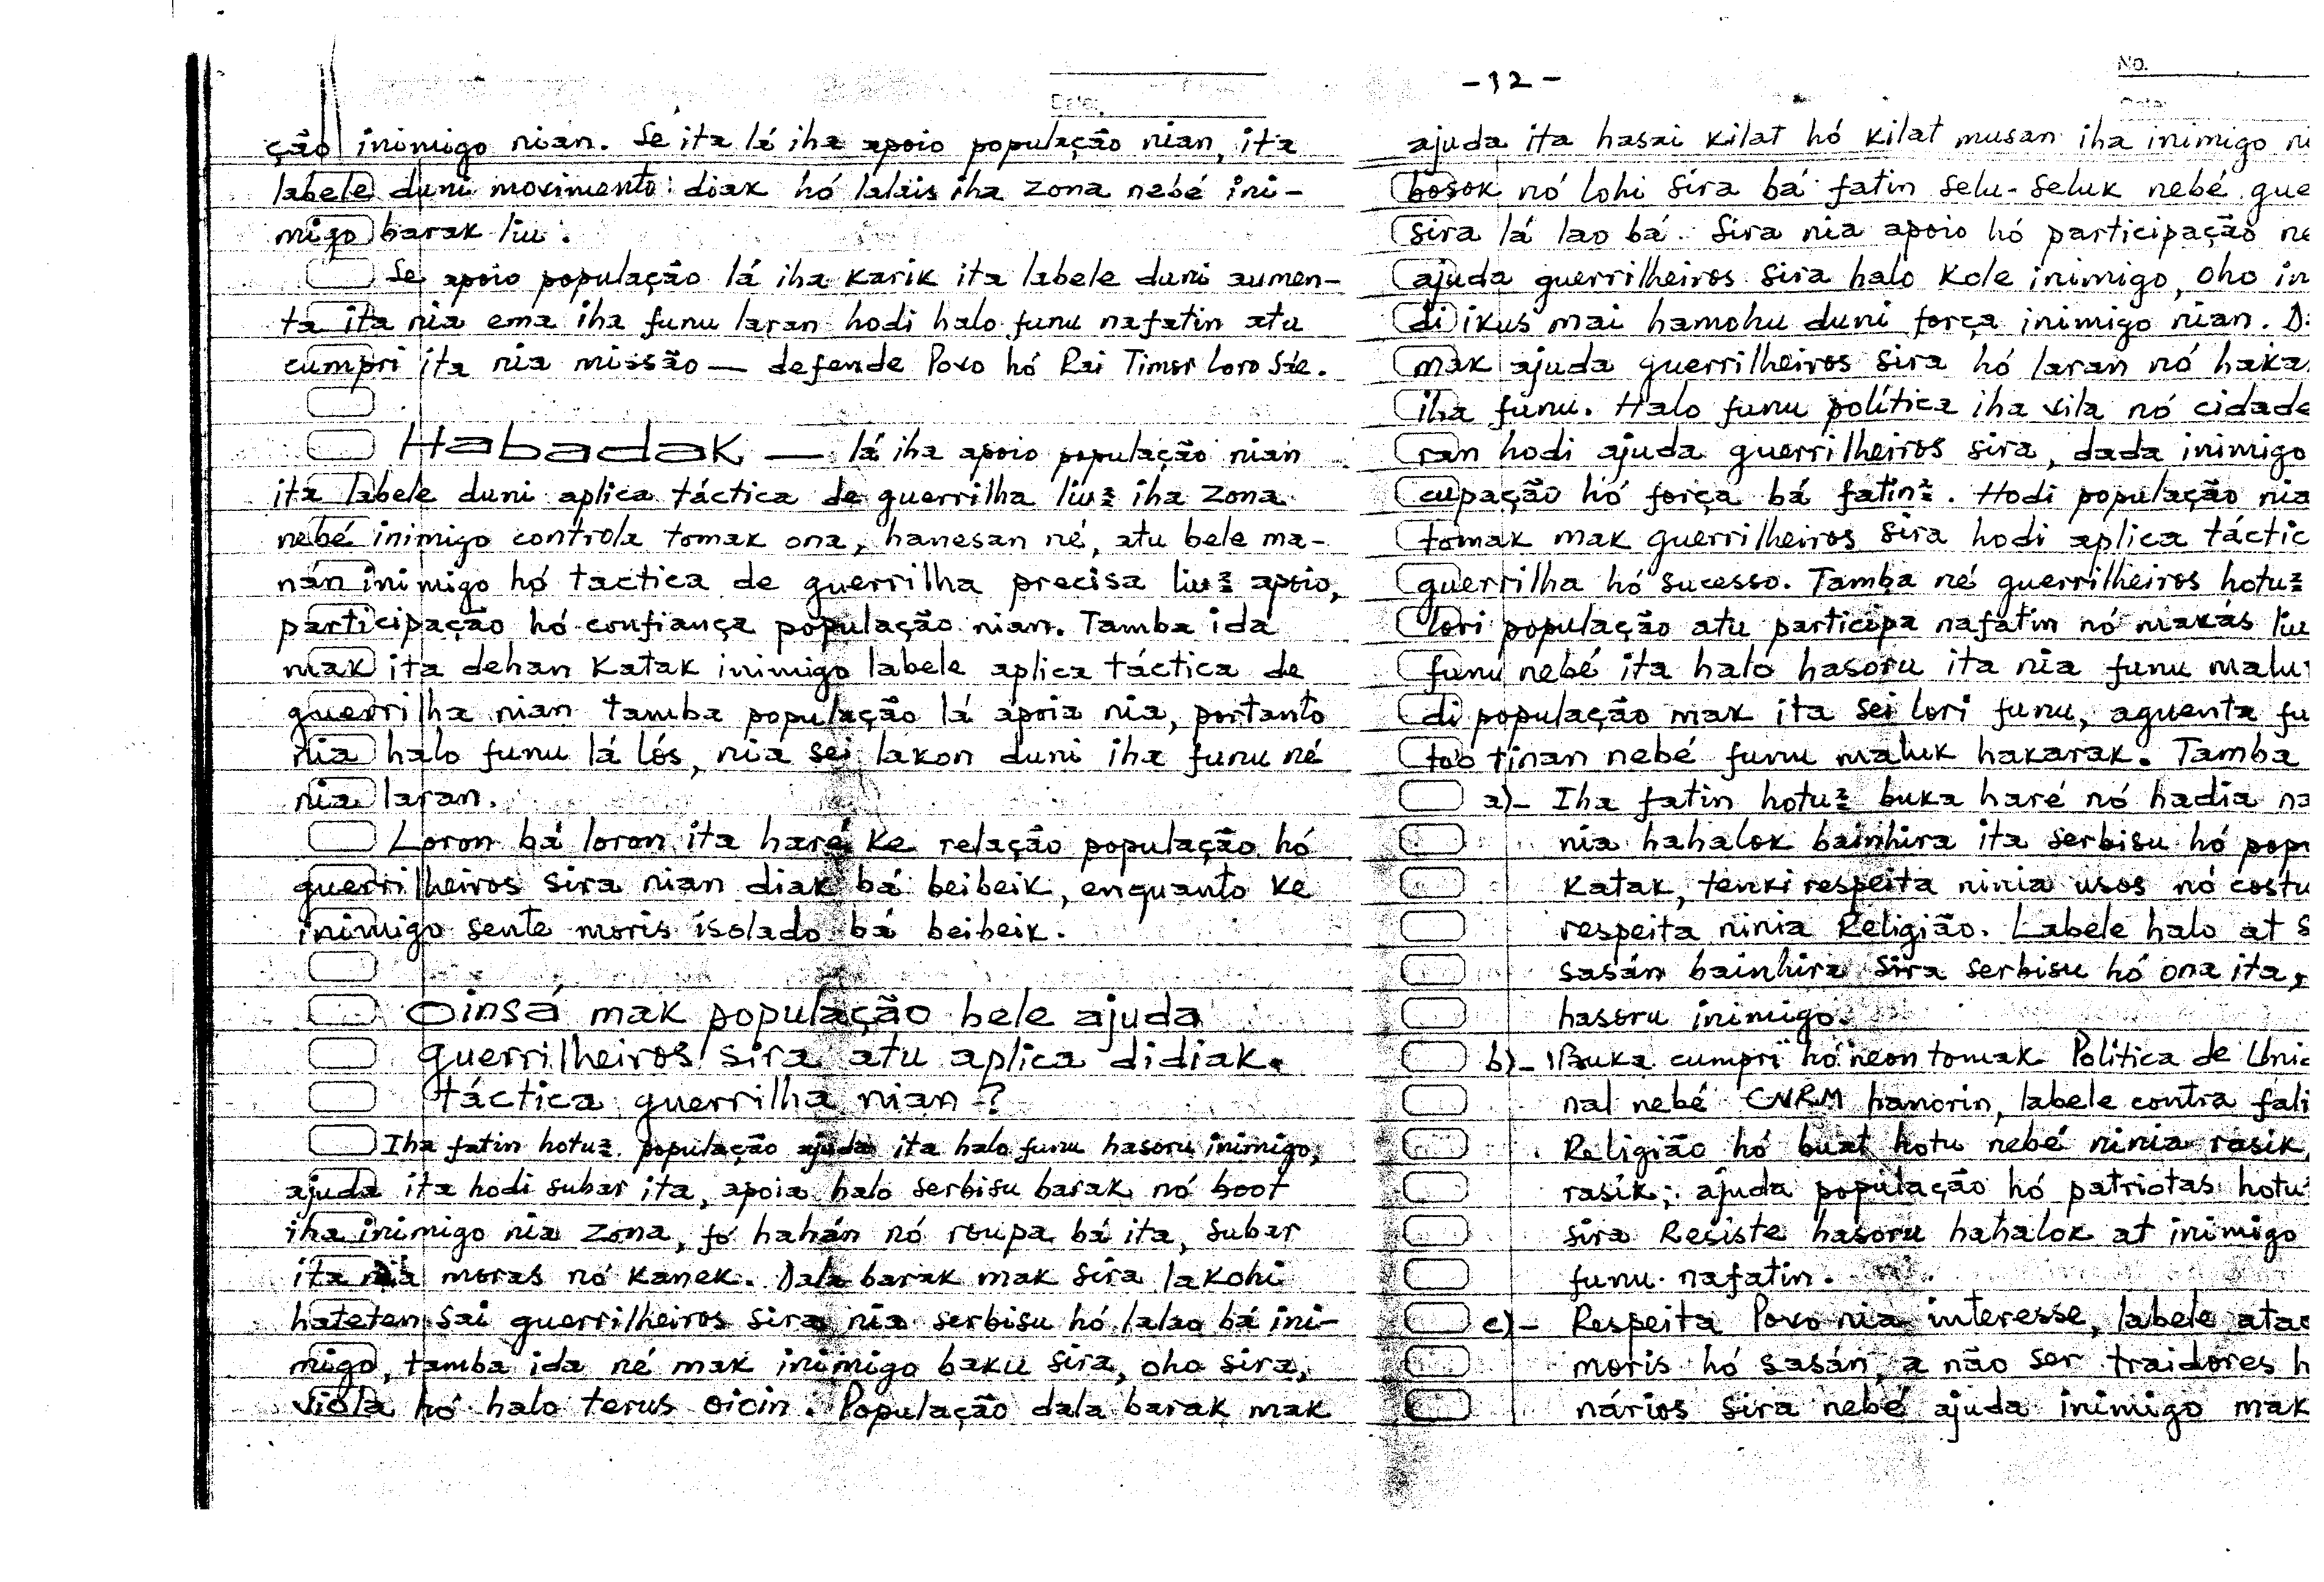 Date:
ção inimigo nian. Se ita lá iha apoio população nian, ita
labele duni movimento diak hó lalais iha zona nebé ini-
migo barak liu.
Se apoio população lá iha karik ita labele duni aumen-
ta ita nia ema iha funu laran hodi halo funu nafatin atu
cumpri ita nia missão — defende Povo hó Rai Timor Loro Sae.
Habadak — lá iha apoio população nian
ita labele duni aplica táctica de guerrilha liu2 iha zona
nebé inimigo controla tomak ona, hanesan né, atu bele ma-
nán inimigo hó tactica de guerrilha precisa liu2 apoio,
participação hó confiança população nian. Tamba ida
mak ita dehan katak inimigo labele aplica táctica de
guerrilha nian tamba população lá apoia nia, portanto
nia halo funu lá lós, nia sei lakon duni iha funu né
nia laran.
Loron bá loron ita haré ke relação população hó
guerrilheiros sira nian diak bá beibeik, enquanto ke
inimigo sente moris isolado bá beibeik.
Oinsá mak população bele ajuda
guerrilheiros sira atu aplica didiak.
táctica guerrilha nian?
Iha fatin hotu2 população ajuda ita halo funu hasoru inimigo,
ajuda ita hodi subar ita, apoia halo serbisu barak nó boot
iha inimigo nia zona, fó hahán nó roupa bá ita, subar
ita nia moras nó kanek. Dala barak mak sira lakohi
hateten sai guerrilheiros sira nia serbisu hó lalao bá ini-
migo, tamba ida né mak inimigo baku sira, oho sira,
viola hó halo terus oioin. População dala barak mak
-32-
No.
Date:
ajuda ita hasai kilat hó kilat musan iha inimigo ni
bosok nó lohi sira bá fatin selu-seluk nebé gue
sira lá lao bá. Sira nia apoio hó participação ne
ajuda guerrilheiros sira halo kole inimigo, oho in
di ikus mai hamohu duni força inimigo nian. D
mak ajuda guerrilheiros sira hó laran nó haka
iha funu. Halo funu política iha vila nó cidade
ran hodi ajuda guerrilheiros sira, dada inimigo
cupação hó força bá fatin2. Hodi população nia
tomak mak guerrilheiros sira hodi aplica táctic
guerrilha hó sucesso. Tamba né guerrilheiros hotu2
lori população atu participa nafatin nó makás liu
funu nebé ita halo hasoru ita nia funu malu
di população mak ita sei lori funu, aguenta fu
too tinan nebé funu maluk hakarak. Tamba
a)- Iha fatin hotu2 buka haré nó hadia na
nia hahalok bainhira ita serbisu hó popu
katak, tenki respeita ninia usos nó costu
respeita ninia Religião. Labele halo at s
sasán bainhira sira serbisu hó ona ita,
hasoru inimigo.
b)- Buka cumpri hó neon tomak Política de Unid
nal nebé CNRM hanorin, labele contra fali
Religião hó buat hotu nebé ninia rasik,
rasik; ajuda população hó patriotas hotu2
sira Resiste hasoru hahalok at inimigo
funu nafatin.
c)- Respeita Povo nia interesse, labele atac
moris hó sasán, a não ser traidores h
nários sira nebé ajuda inimigo mak